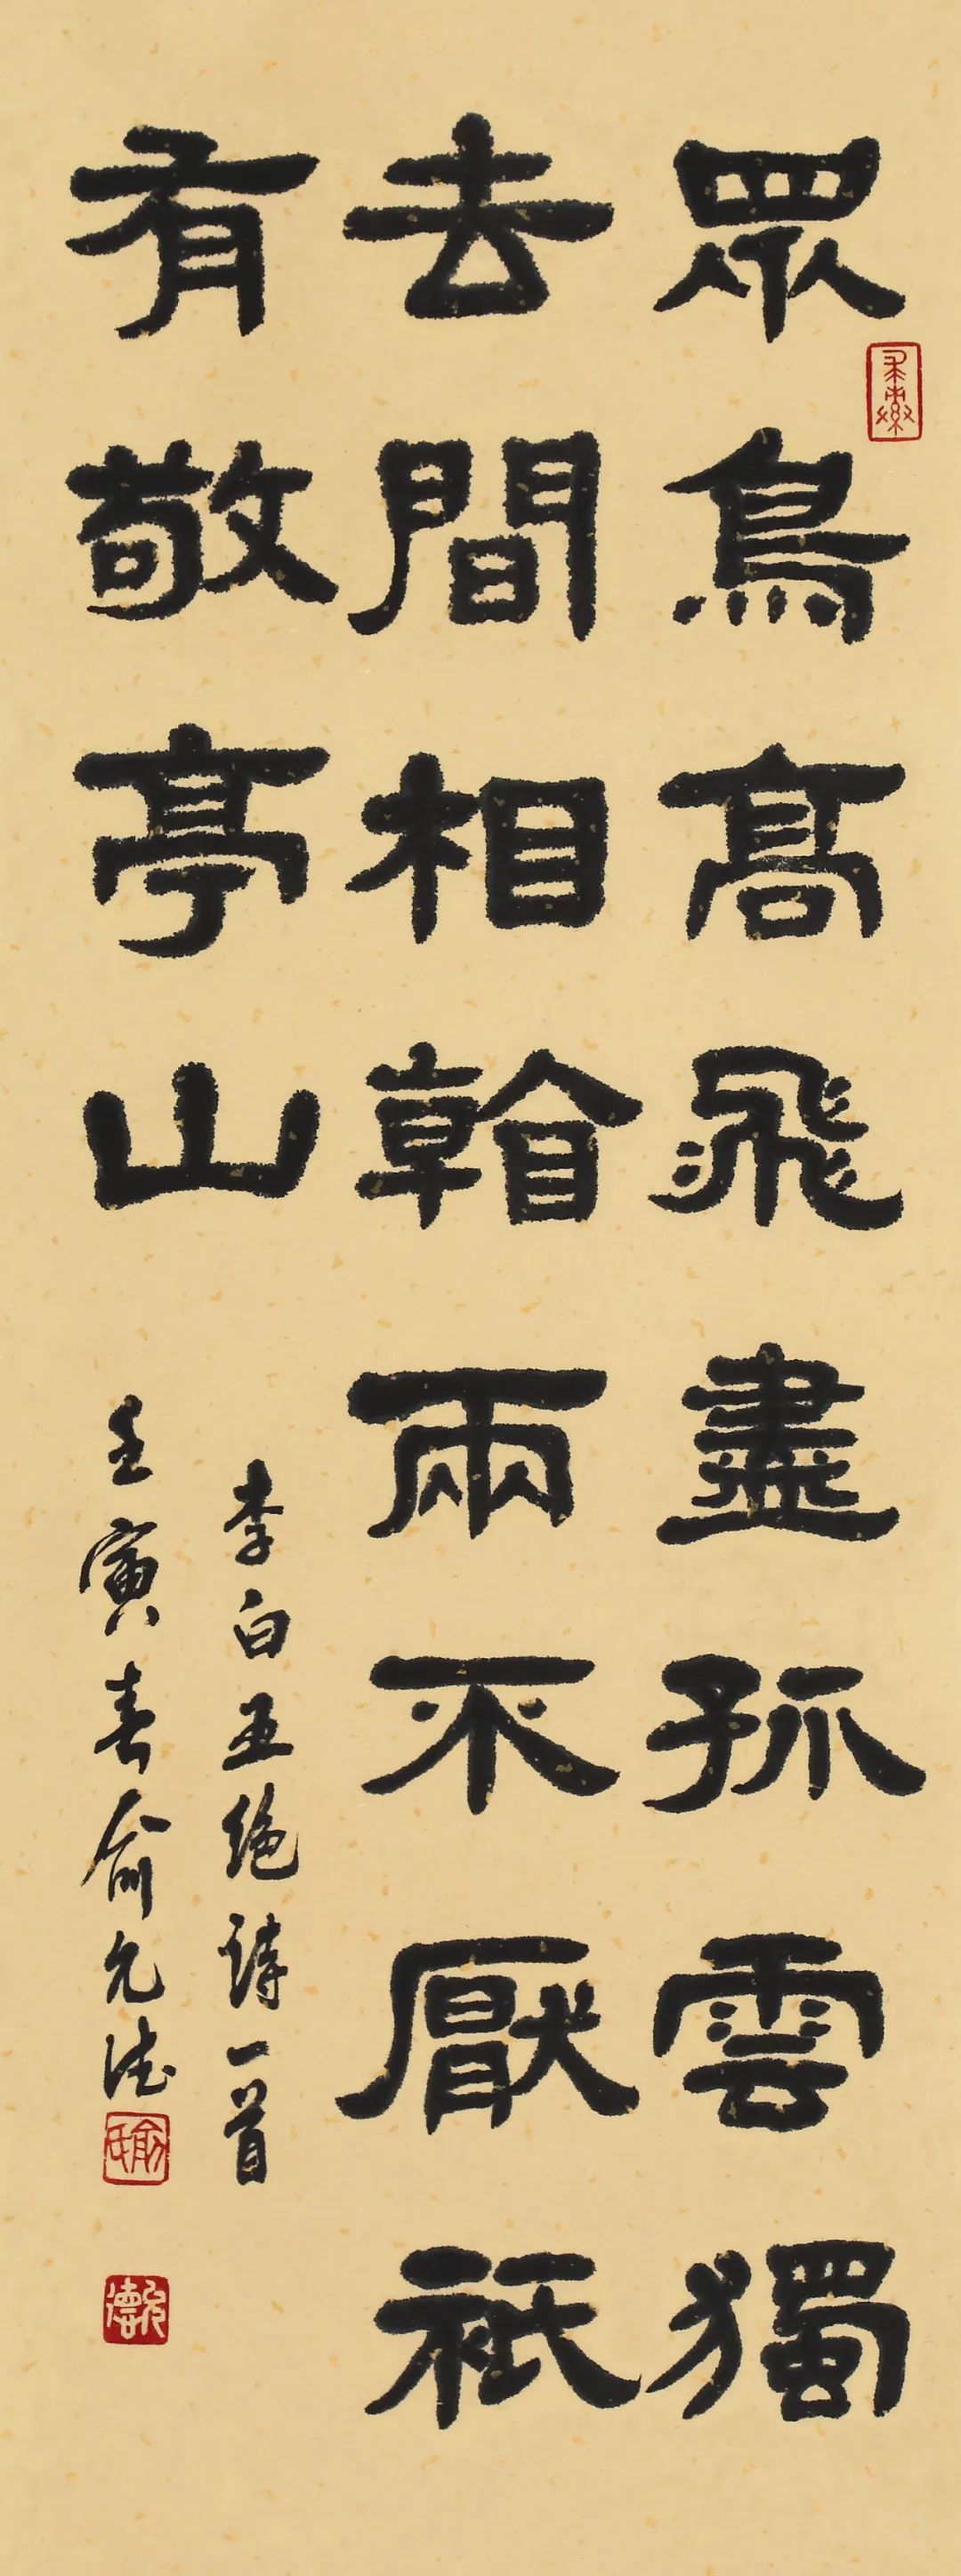 眾鳥高飛盡孤雲獨
去間相看兩不厭祇
有敬亭山
李白五絕詩一首
壬寅春俞允德